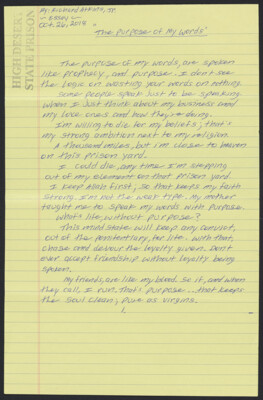 By: Richard Adkins, JR.
~ Essay ~
Oct. 26, 2015
HIGH DESERT
STATE PRISON
"The Purpose of My Words"
The purpose of my words, are spoken
like prophecy, and purpose. I don't see
the logic on wasting your words on nothing.
Some people speak just to be speaking.
When I just think about my business and
my love ones and how they're doing.
I'm willing to die for my beliefs; that's
my strong ambition next to my religion.
A thousand miles, but I'm closer to heaven
on this prison yard.
I could die any time I'm stepping
out of my element on that prison yard.
I keep Allah first; so that keeps my faith
strong. I'm not the type. My mother
taught me to speak my words with purpose.
What's life, without purpose?
This mind state will keep any convict,
out of the penitentiary, for life. With that,
chose and devour the loyalty given. Don't
ever accept friendship without loyalty being
spoken.
My friends, are like my blood. So if, and when
they call, I run. That's purpose... that keeps
the soul clean; pure as virgins.